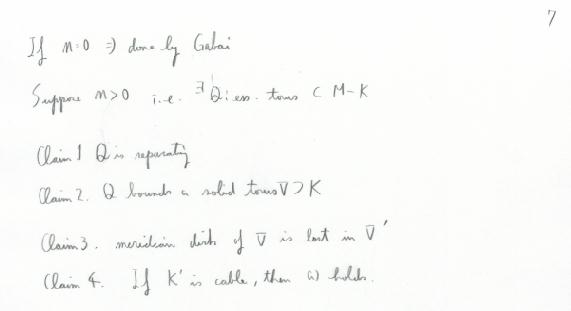 7
If n=0 ⇒ done by Gabai
Suppose n>0 i.e. ∃Q: ess. torus ⊂ M-K
Claim 1 Q is separating
Claim 2. Q bounds a solid torus V ⊃ K
Claim 3. meridian disk of V is lost in V'
Claim 4. If K' is cable, then (1) holds.